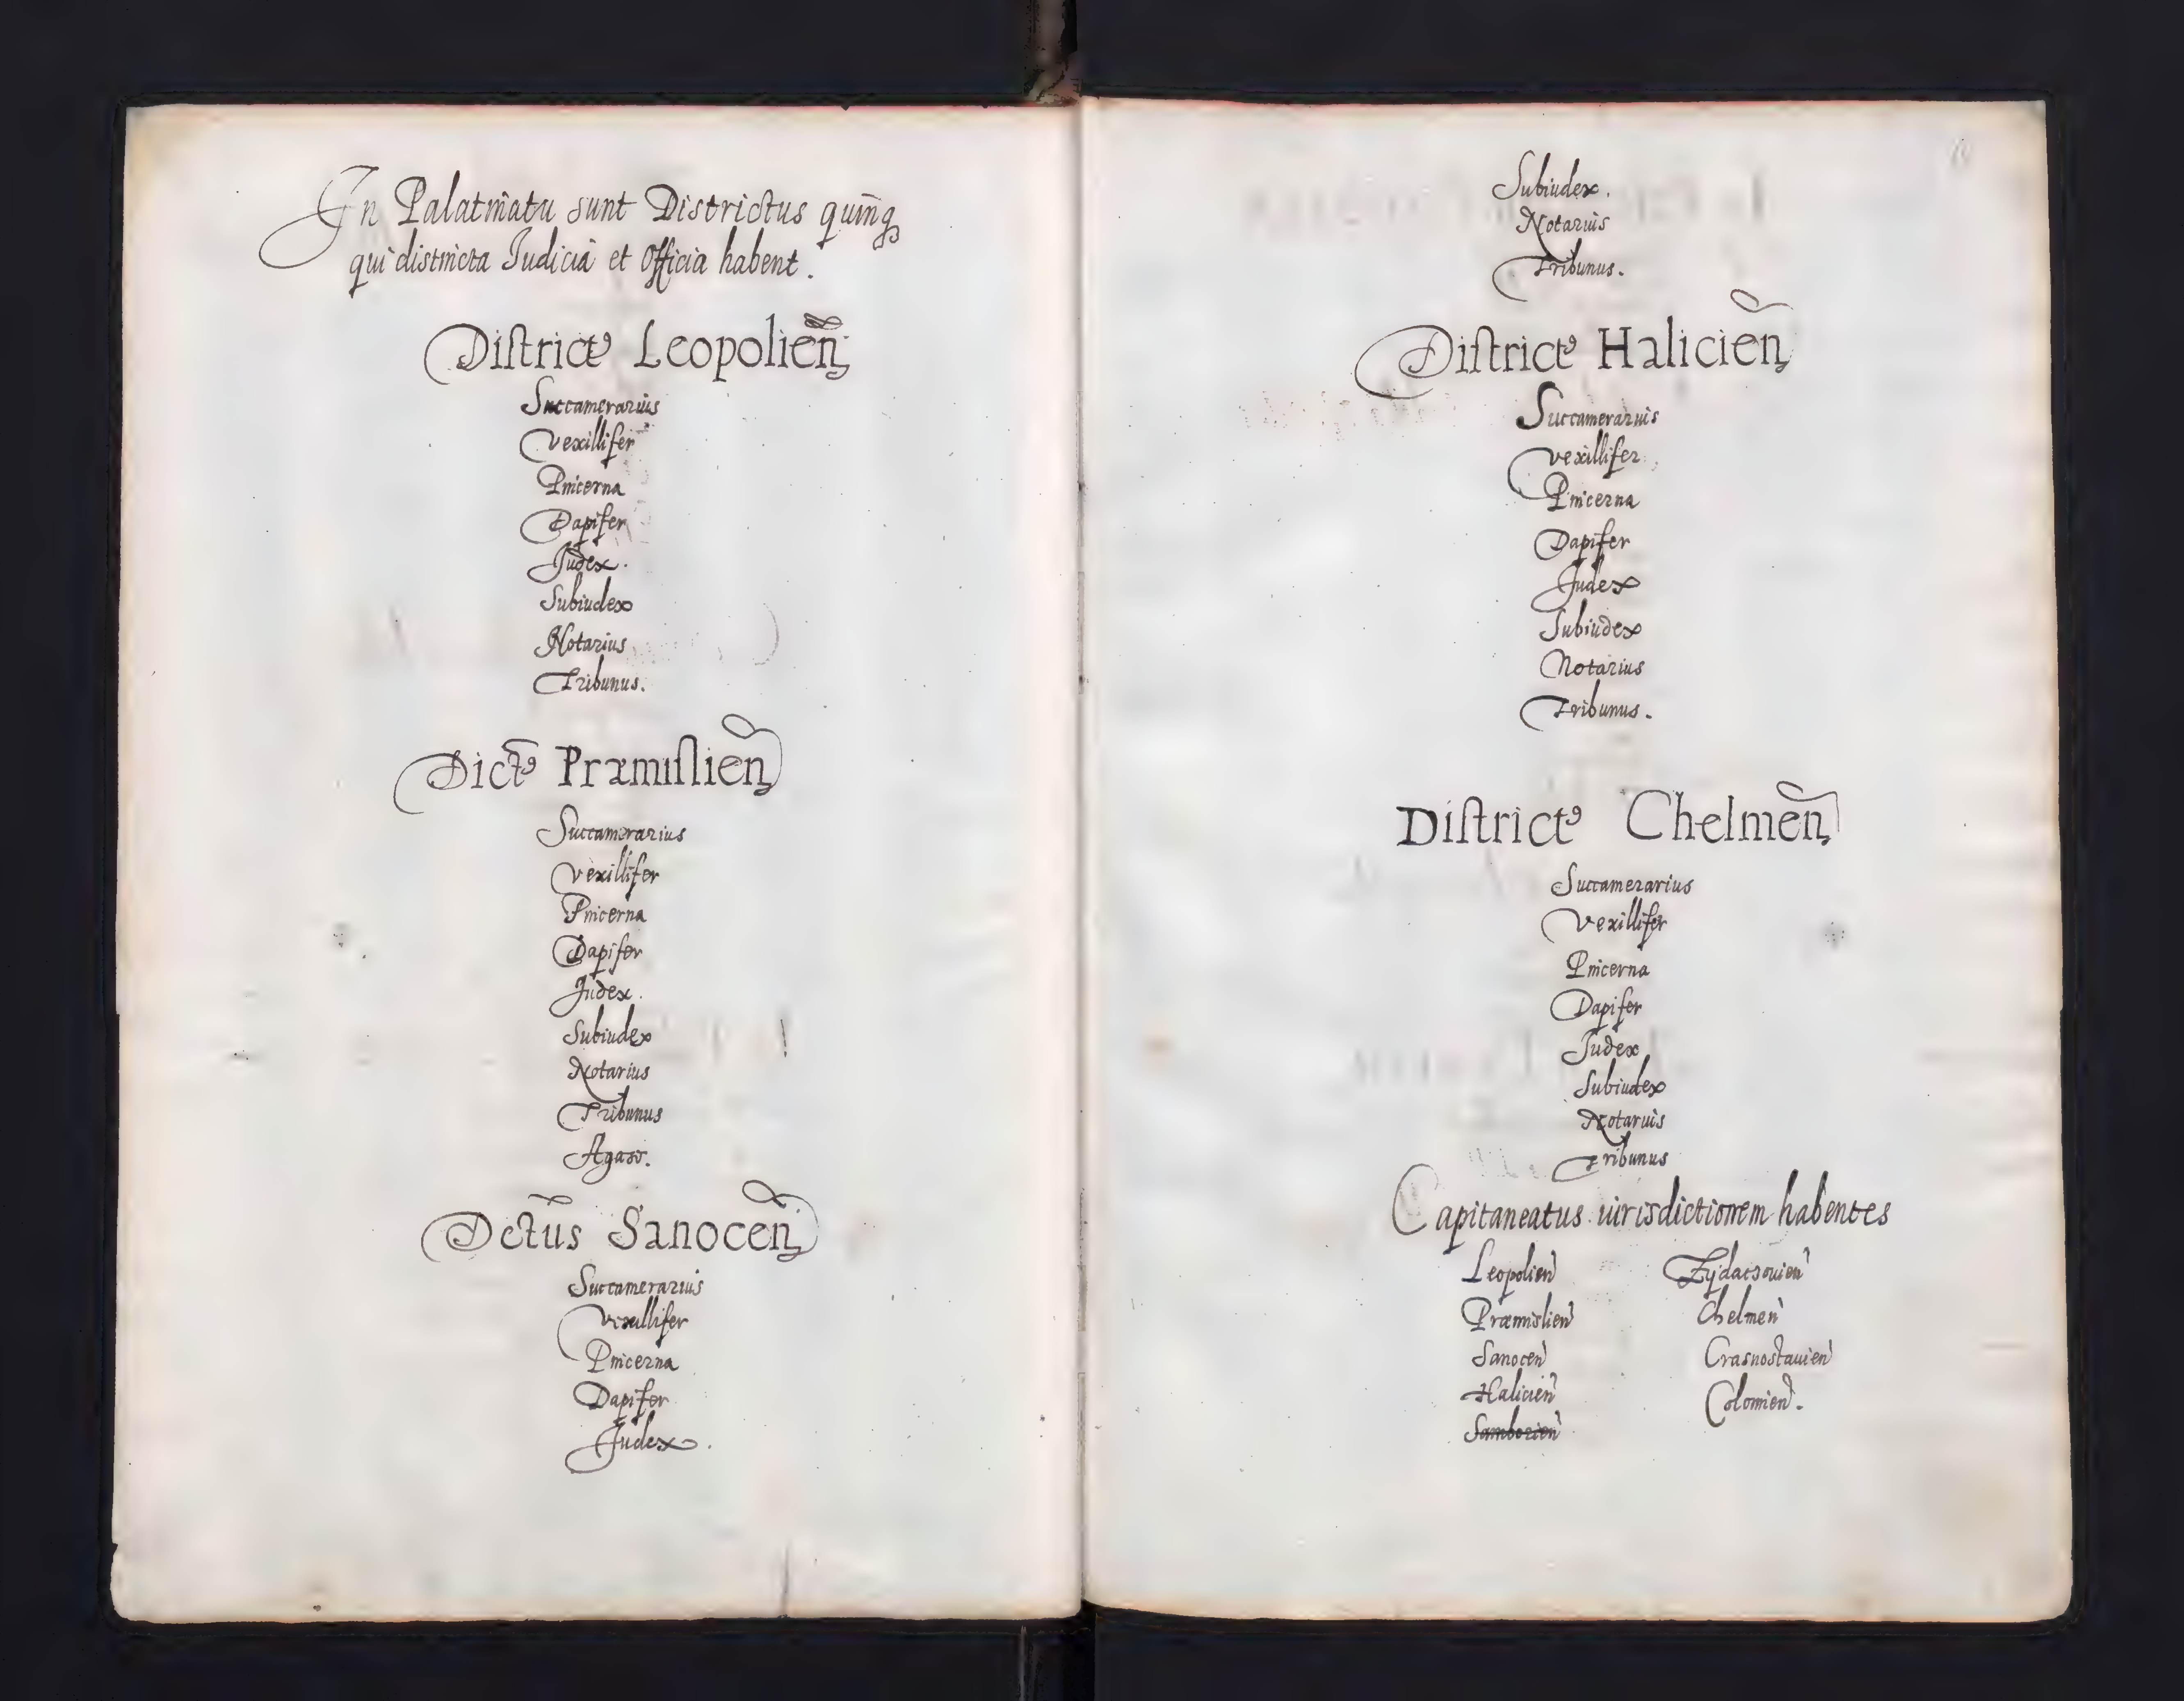 In Palatinatu sunt Districtus quinq
qui distincta Judicia et Officia habent.
Districtꝰ Leopolień
Succamerarius
Vexillifer
Pincerna
Dapifer
Judex.
Subiudex
Notarius
Tribunus.
Dictꝰ Præmislień
Succamerarius
Vexillifer
Pincerna
Dapifer
Judex.
Subiudex
Notarius
Tribunus
Agazo.
Dctūs Sanoceń
Succamerarius
Vexillifer
Pincerna
Dapifer
Judex.
Subiudex.
Notarius
Tribunus.
Districtꝰ Halicień
Succamerarius
Vexillifer
Pincerna
Dapifer
Judex
Subiudex
Notarius
Tribunus.
Districtꝰ Chelmeń
Succamerarius
Vexillifer
Pincerna
Dapifer
Judex
Subiudex
Notarius
Tribunus
Capitaneatus iurisdictionem habentes
Leopolień
Præmislień
Sanoceń
Halicień
Samborień
Zydaczouień
Chelmeń
Crasnostauień
Colomień.